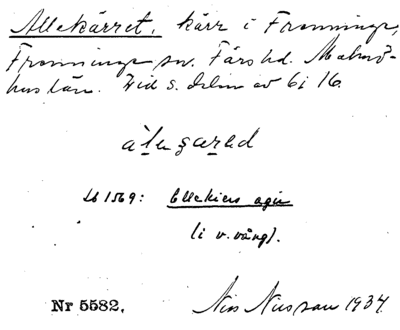 Allekärret, kärr i Fränninge,
Fränninge sn. Färs hd. Malmö-
hus län. Vid s. delen av 6 i 16.
Lb 1569: Ellekiers agir
(i v. vång).
Nr 5582. Nils Nilsson 1934.